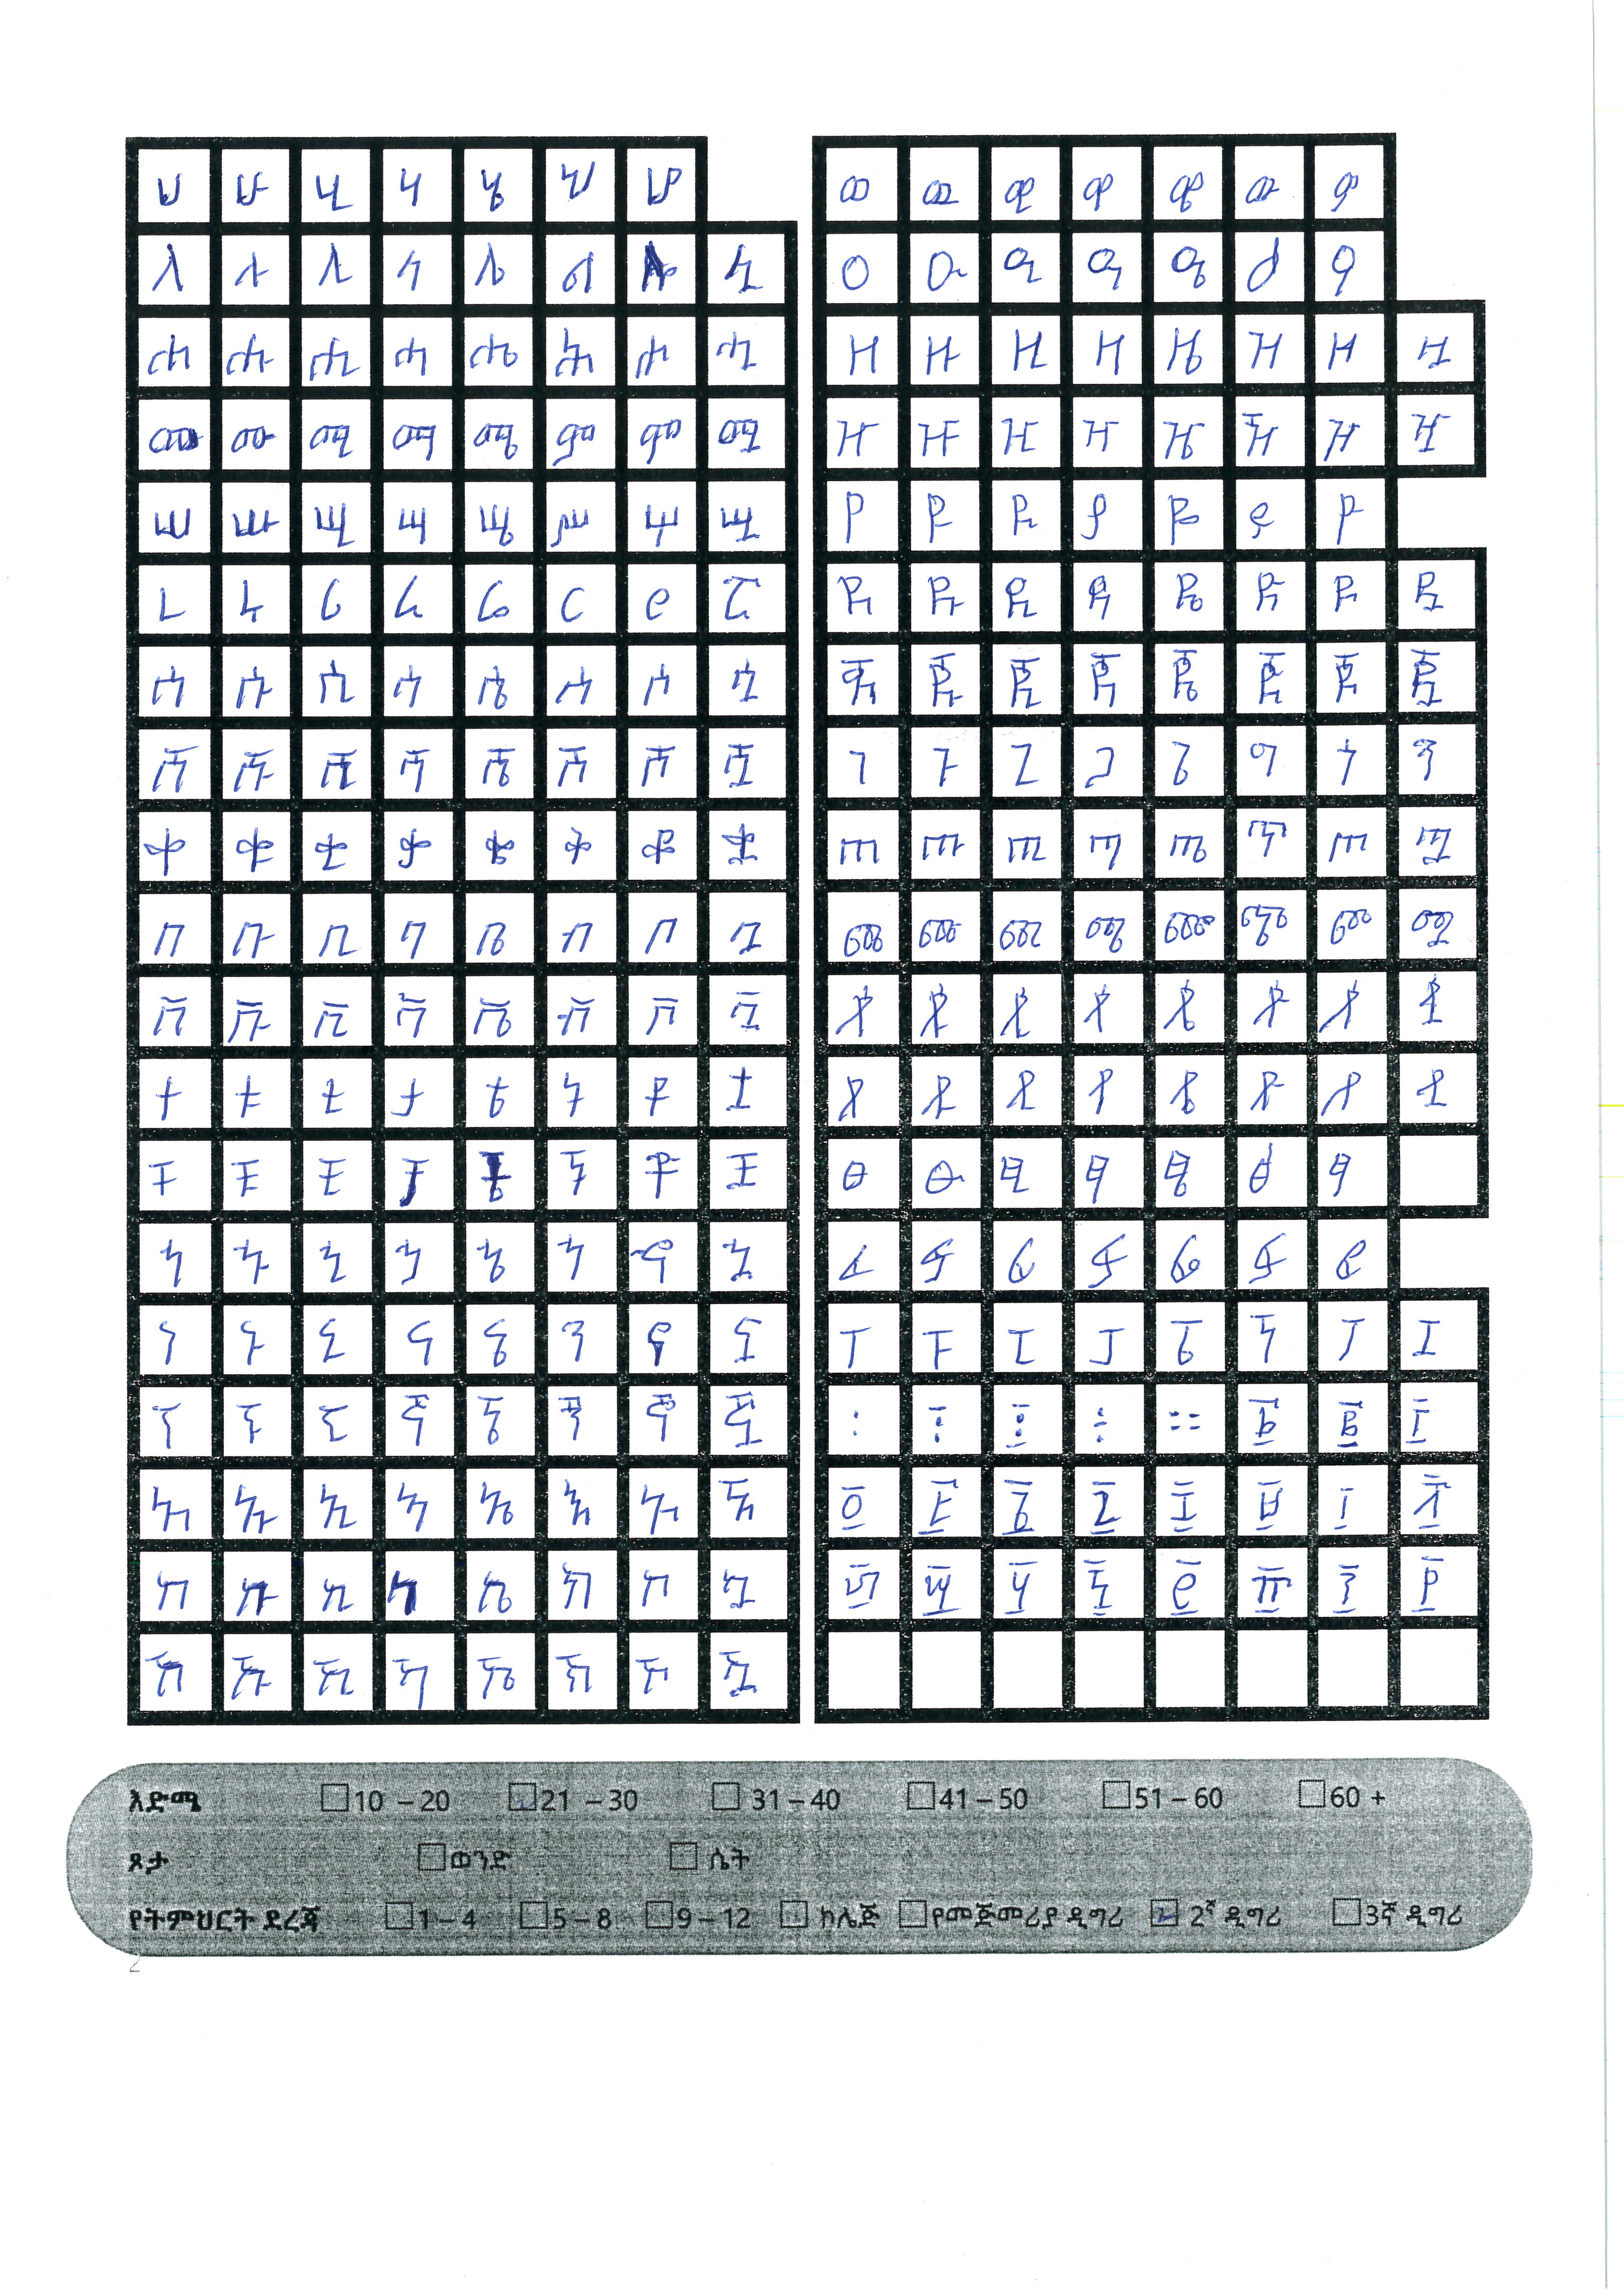 ሀ ሁ ሂ ሃ ሄ ህ ሆ
ለ ሉ ሊ ላ ሌ ል ሎ ሏ
ሐ ሑ ሒ ሓ ሔ ሕ ሖ ሗ
መ ሙ ሚ ማ ሜ ም ሞ ሟ
ሠ ሡ ሢ ሣ ሤ ሥ ሦ ሧ
ረ ሩ ሪ ራ ሬ ር ሮ ሯ
ሰ ሱ ሲ ሳ ሴ ስ ሶ ሷ
ሸ ሹ ሺ ሻ ሼ ሽ ሾ ሿ
ቀ ቁ ቂ ቃ ቄ ቅ ቆ ቋ
በ ቡ ቢ ባ ቤ ብ ቦ ቧ
ቨ ቩ ቪ ቫ ቬ ቭ ቮ ቯ
ተ ቱ ቲ ታ ቴ ት ቶ ቷ
ቸ ቹ ቺ ቻ ቼ ች ቾ ቿ
ኀ ኁ ኂ ኃ ኄ ኅ ኆ ኋ
ነ ኑ ኒ ና ኔ ን ኖ ኗ
ኘ ኙ ኚ ኛ ኜ ኝ ኞ ኟ
አ ኡ ኢ ኣ ኤ እ ኦ ኧ
ከ ኩ ኪ ካ ኬ ክ ኮ ኳ
ኸ ኹ ኺ ኻ ኼ ኽ ኾ ዃ
ወ ዉ ዊ ዋ ዌ ው ዎ
ዐ ዑ ዒ ዓ ዔ ዕ ዖ
ዘ ዙ ዚ ዛ ዜ ዝ ዞ ዟ
ዠ ዡ ዢ ዣ ዤ ዥ ዦ ዧ
የ ዩ ዪ ያ ዬ ይ ዮ
ደ ዱ ዲ ዳ ዴ ድ ዶ ዷ
ጀ ጁ ጂ ጃ ጄ ጅ ጆ ጇ
ገ ጉ ጊ ጋ ጌ ግ ጎ ጓ
ጠ ጡ ጢ ጣ ጤ ጥ ጦ ጧ
ጨ ጩ ጪ ጫ ጬ ጭ ጮ ጯ
ጰ ጱ ጲ ጳ ጴ ጵ ጶ ጷ
ጸ ጹ ጺ ጻ ጼ ጽ ጾ ጿ
ፀ ፁ ፂ ፃ ፄ ፅ ፆ
ፈ ፉ ፊ ፋ ፌ ፍ ፎ
ፐ ፑ ፒ ፓ ፔ ፕ ፖ ፗ
፡ ፣ ፤ ፥ ። ፩ ፪ ፫
፬ ፭ ፮ ፯ ፰ ፱ ፲ ፳
፴ ፵ ፶ ፷ ፸ ፹ ፺ ፻
እድሜ 10 – 20 21 – 30 31 – 40 41 – 50 51 – 60 60 +
ጾታ ወንድ ሴት
የትምህርት ደረጃ 1 – 4 5 – 8 9 – 12 ኮሌጅ የመጅመሪያ ዲግሪ 2ኛ ዲግሪ 3ኛ ዲግሪ